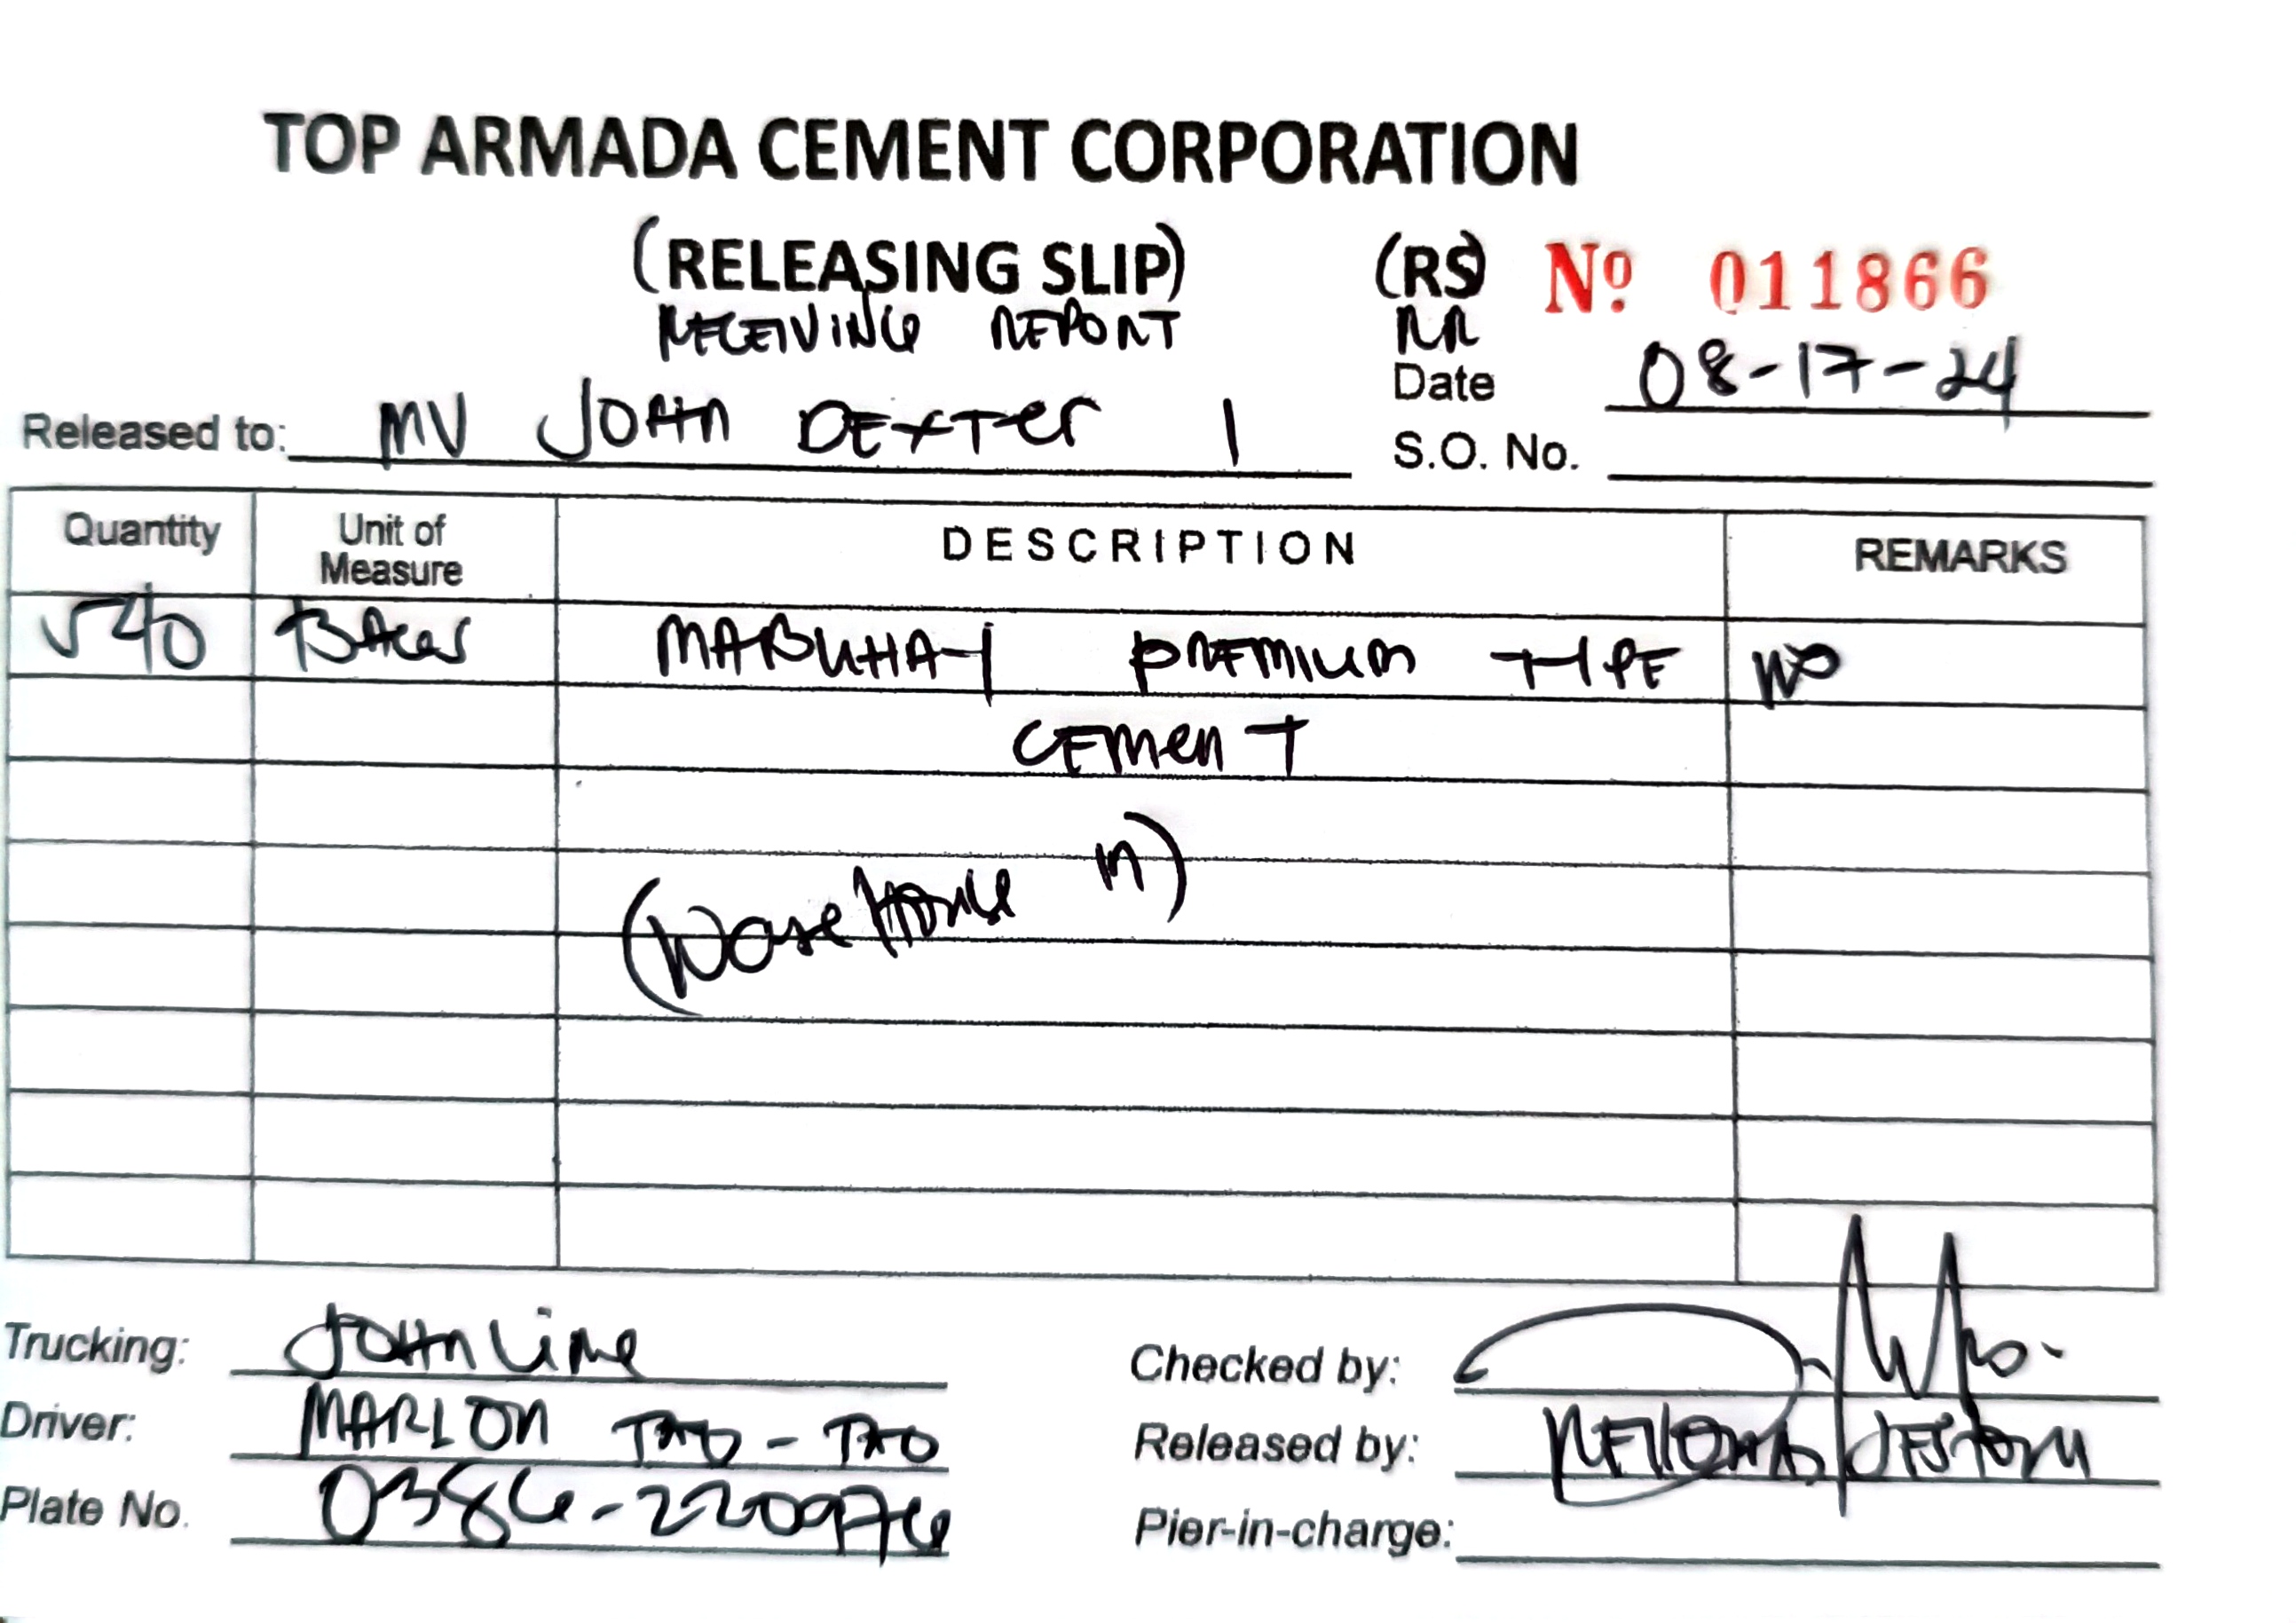 TOP ARMADA CEMENT CORPORATION
(RELEASING SLIP) (RS) Nº 011866
RECEIVING REPORT RR
Date 08-17-24
Released to: MV JOHN DEXTER 1
S.O. No.
Quantity Unit of Measure DESCRIPTION REMARKS
540 BAGS MABUHAY PREMIUM TYPE
CEMENT
(WareHouse in)
Trucking: JOHNLINE
Checked by:
Driver: MARLON TAO-TAO
Released by:
Plate No.
Pier-in-charge: